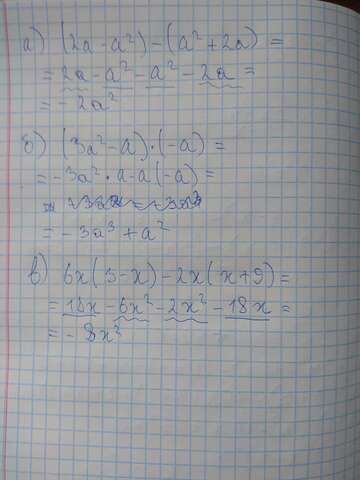 а) (2a - a²) - (a² + 2a) =
= 2a - a² - a² - 2a =
= - 2a²
б) (3a² - a) · (-a) =
= -3a² · a - a(-a) =
= -3a³ + a²
в) 6x(3 - x) - 2x(x + 9) =
= 18x - 6x² - 2x² - 18x =
= - 8x²